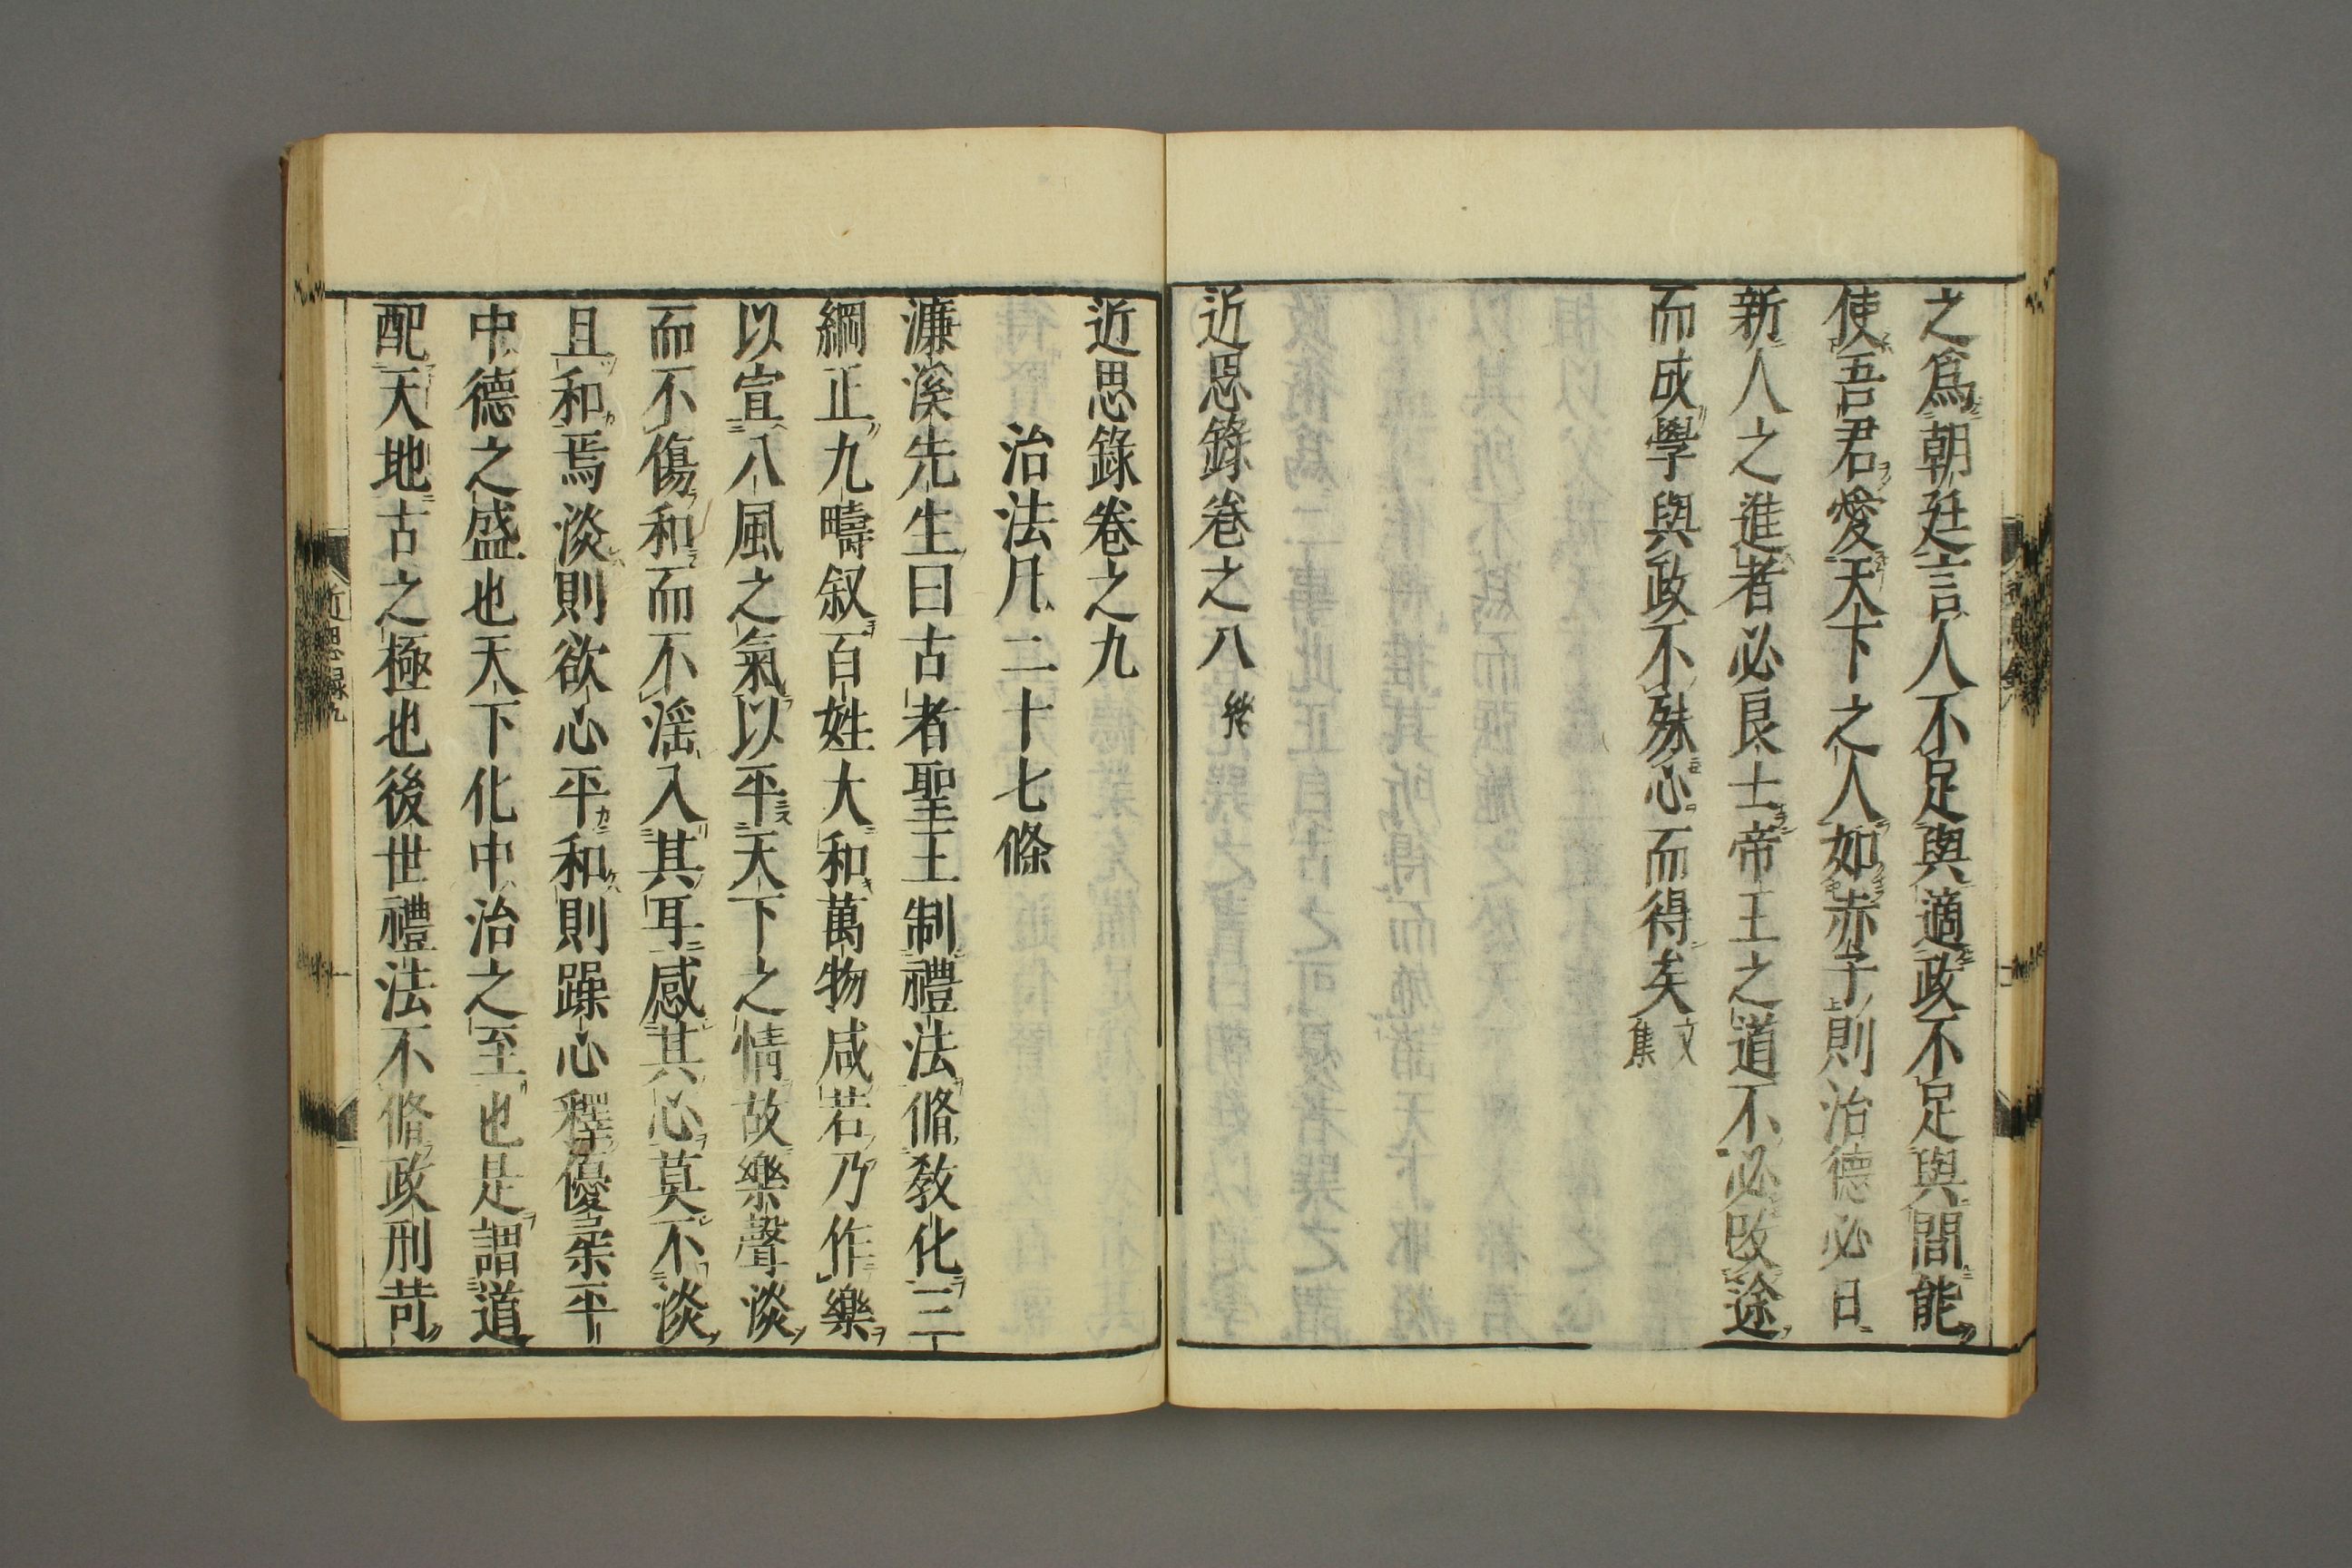 之爲朝廷言人不足與適政不足與間能
使吾君愛天下之人如赤子則治德必日
新人之進者必良士帝王之道不必改途
而成學與政不殊心而得矣文集
近思錄卷之八終
近思錄卷之九
治法凡二十七條
濂溪先生曰古者聖王制禮法脩敎化三
綱正九疇叙百姓大和萬物咸若乃作樂
以宣八風之氣以平天下之情故樂聲淡
而不傷和而不淫入其耳感其心莫不淡
且和焉淡則欲心平和則躁心釋優柔平
中德之盛也天下化中治之至也是謂道
配天地古之極也後世禮法不脩政刑苛
近思錄九